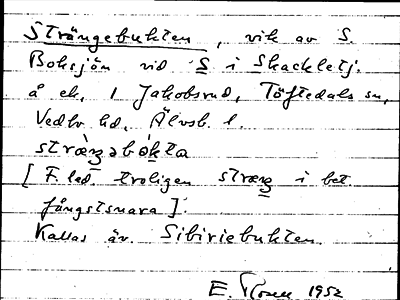 Strängebukten, vik av S.
Boksjön vid S i Skackletj.
å ek. 1 Jakobsrud, Töftedals sn,
Vedbo hd, Älvsb. l.
stræ̀ꝫəbókta
[F. led. troligen stræꝫ i bet.
fångstsnara].
Kallas äv. Sibiriebukten.
E. 1952